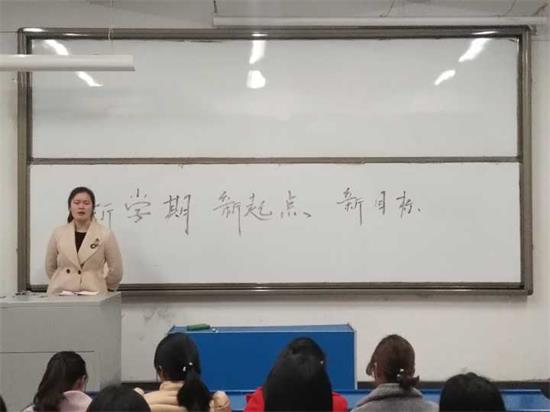 新学期 新起点 新目标